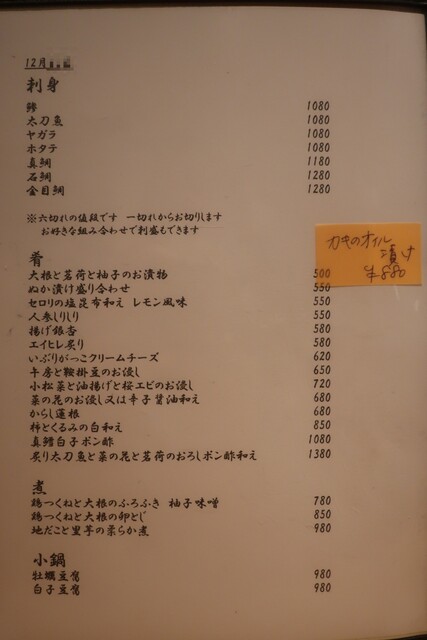 12月
刺身
鯵 1080
太刀魚 1080
ヤガラ 1080
ホタテ 1080
真鯛 1180
石鯛 1280
金目鯛 1280
※六切れの値段です 一切れからお切りします
お好きな組み合わせで刺盛もできます
カキのオイル
漬け
¥880
肴
大根と茗荷と柚子のお漬物 500
ぬか漬け盛り合わせ 550
セロリの塩昆布和え レモン風味 550
人参しりしり 550
揚げ銀杏 580
エイヒレ炙り 580
いぶりがっこクリームチーズ 620
牛房と鞍掛豆のお浸し 650
小松菜と油揚げと桜エビのお浸し 720
菜の花のお浸し又は辛子醤油和え 680
からし蓮根 680
柿とくるみの白和え 850
真鱈白子ポン酢 1080
炙り太刀魚と菜の花と茗荷のおろしポン酢和え 1380
煮
鶏つくねと大根のふろふき 柚子味噌 780
鶏つくねと大根の卵とじ 850
地だこと里芋の柔らか煮 980
小鍋
牡蠣豆腐 980
白子豆腐 980